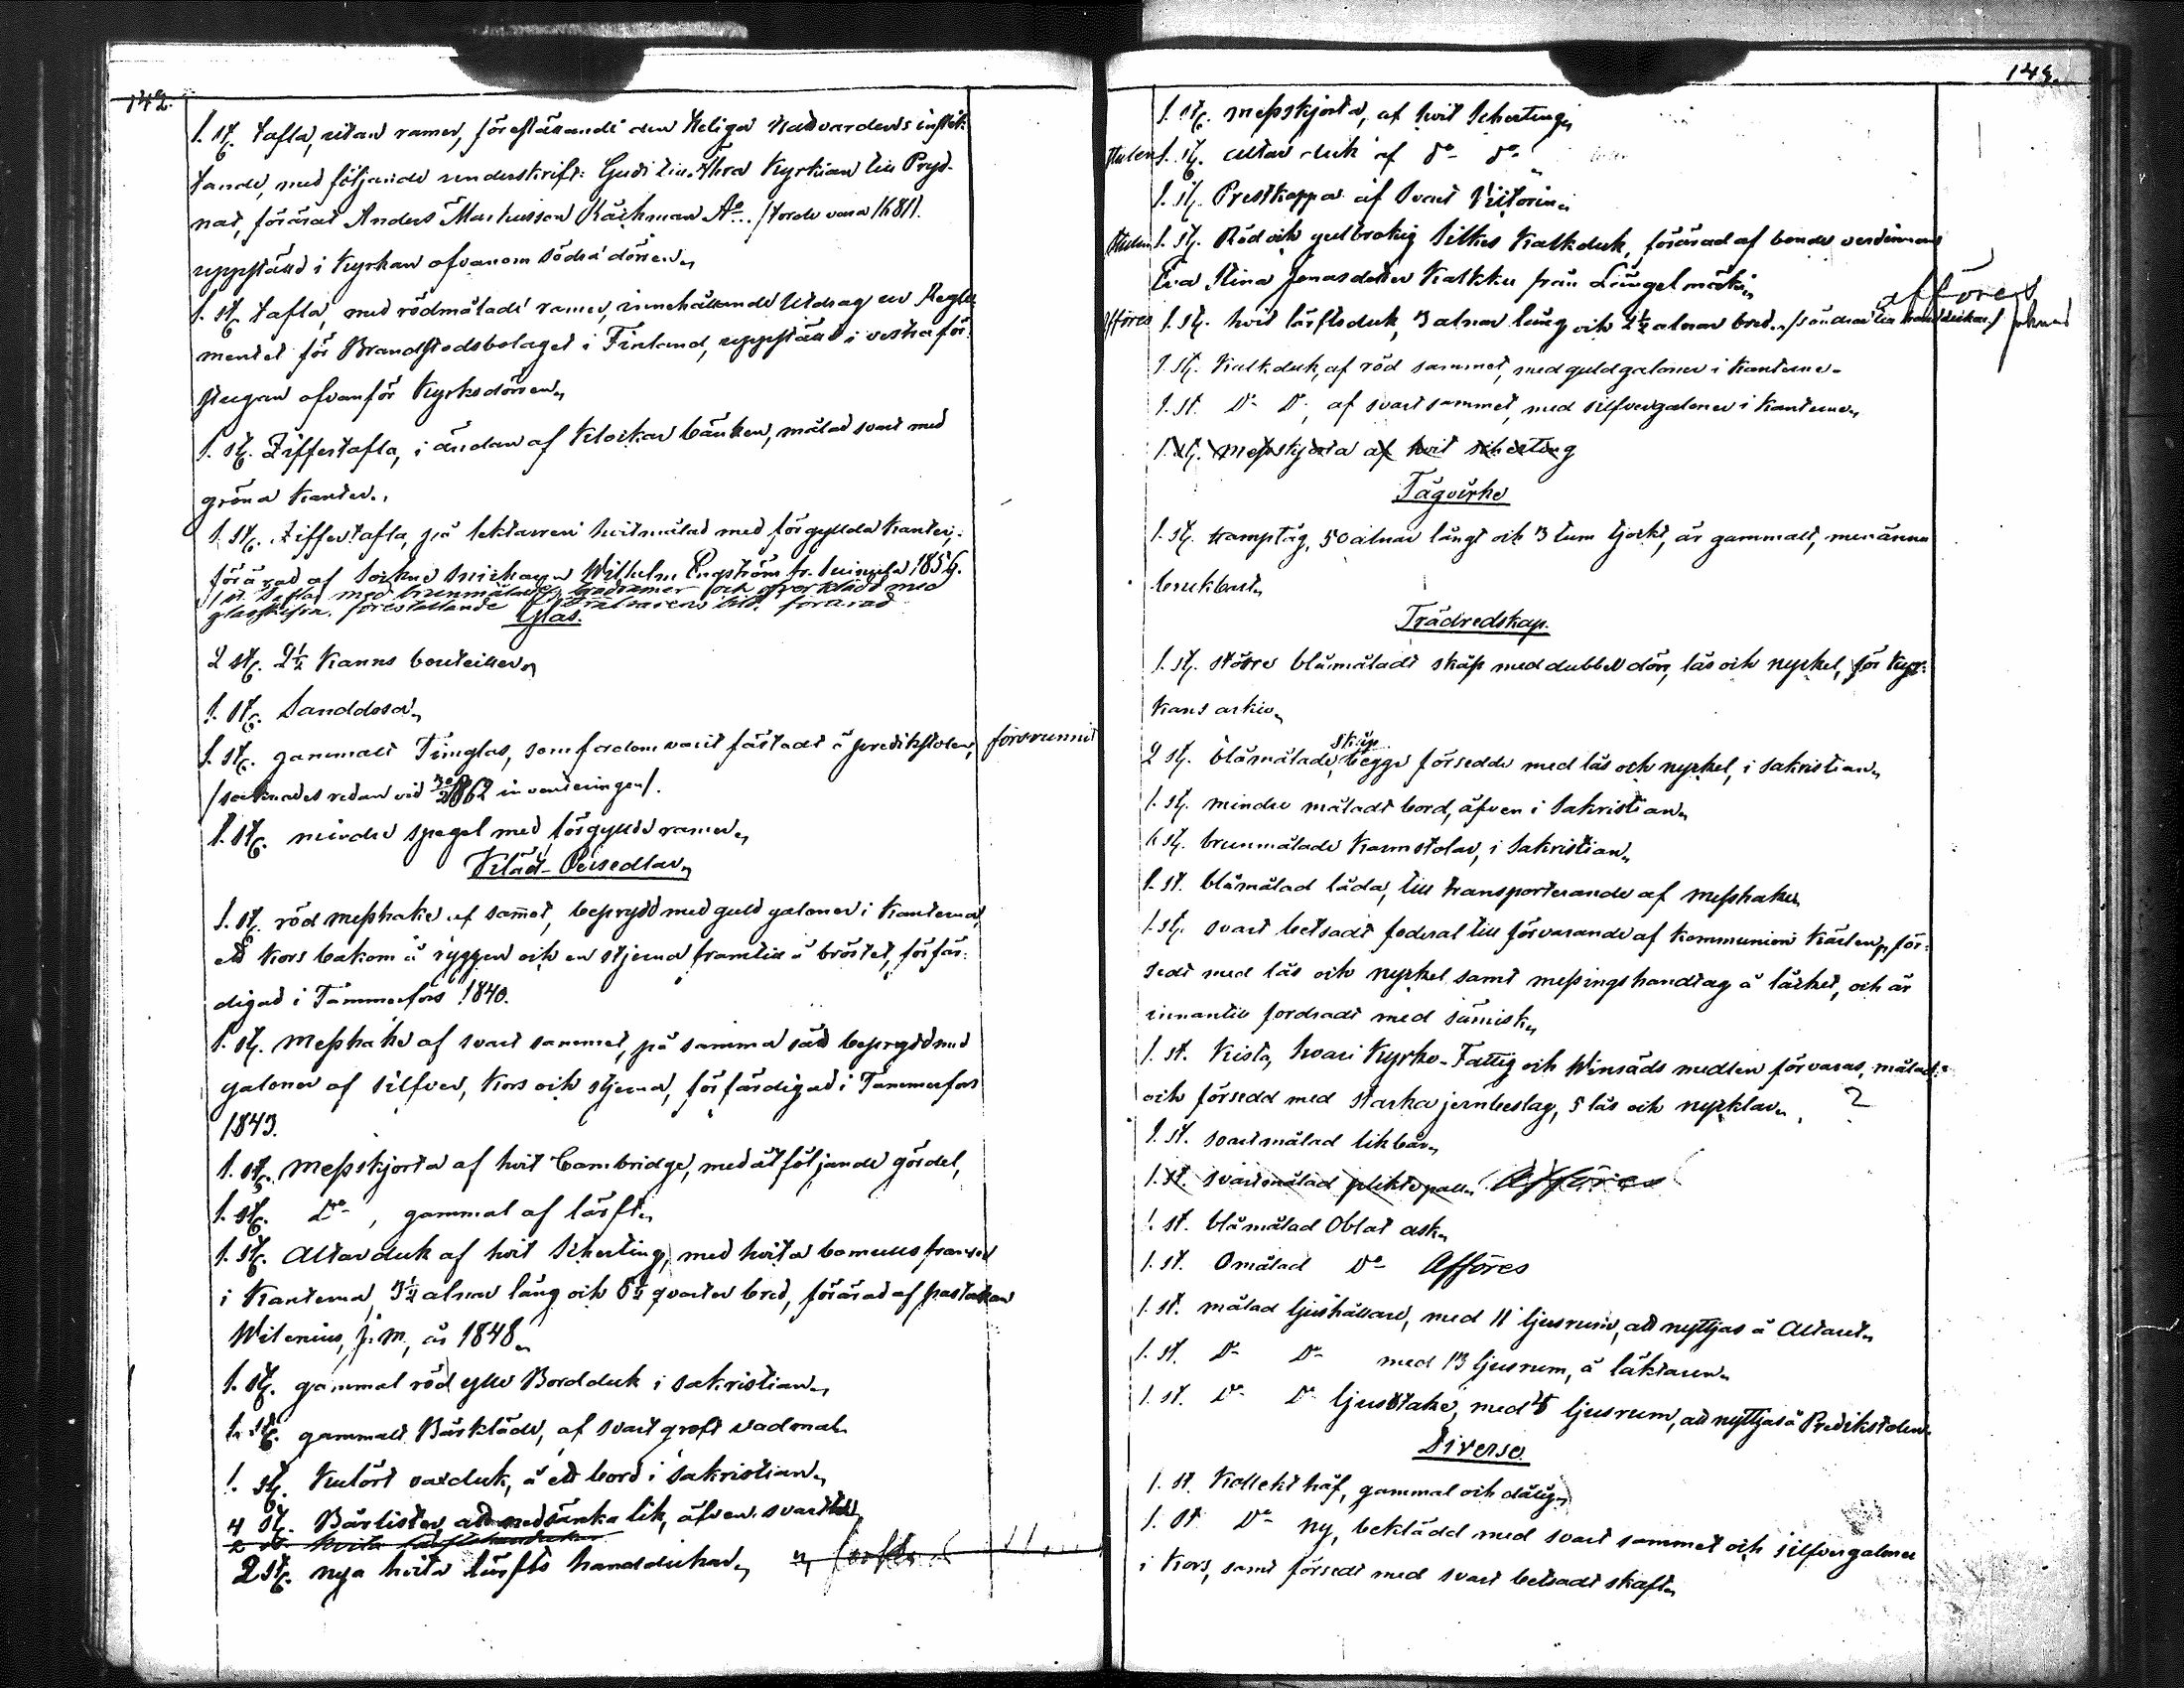 142.
1. st. tafla, utan ramer, föreställande den Heliga Nattvardens instik
tande, med följande underskrift: Gudi till Ähra Kyrkian till Pryd-
nat, förärat Anders Markusson Ao... /torde vara 1681/.
uppställd i Kyrkan ofvanom södra dörren,
1. st. tafla, med rödmålade ramer, innehållande Utdrag ur Regle
mentet för Brandstodsbolaget i Finland, uppställd i vestra för-
stugan ofvanför Kyrksdörren,
1. st. Ziffertafla, i ändan af Klockar bänken, målad svart med
gröna kanter.,
1. st. Ziffertafla, på lektaren hvitmålad med förgyllda kanter,
förärad af Sockne Snickaren Wilhelm Engström fr. 1856.
1 st. tafla med brunmålade träramer och öfverklädd med
glasskifva, föreställande Frälsarens bild. förärad
Glas.
2 st. 2½ Kanns bouteiller,
1. st. Sanddosa,
1. st. gammalt Timglas, som fordom varit fästadt å predikstolen, försvunnit
/saknades redan vid 1862 inventeringen/.
1. st. mindre spegel med förgyllda ramer,
Kläd-Persedlar,
1. st. röd messhake af sammet, beprydd med guld galoner i kanterna,
ett kors bakom å ryggen och en stjerna framtill å bröstet, förfär-
digad i Tammerfors 1840.
1. st. Messhake af svart sammet, på samma sätt beprydd med
galoner af silfver, kors och stjerna, förfärdigad i Tammerfors
1843.
1. st. Messskjorta af hvit Cambridge, med åtföljande gördel,
1. st. Do , gammal af lärft,
1. st. Altarduk af hvit Scherting, med hvita bomulls fransar
i Kanterna, 3¼ alnar lång och 6½ qvarter bred, förärad af pastorskan
Wilenius, j. m., år 1848,
1. st. gammal röd ylle Bordduk i sakristian,
1. st. gammalt Bårkläde, af svart groft vadmal
1. st. Kulört vaxduk, å ett bord i sakristian,
4 st. Bårlister, att nedsänka lik, äfven svart
2 st. hvita lärftshanddukar
2 st. nya hvita lärfts handdukar,
143.
1. st. messskjorta, af hvit Scherting,
stulen 1. st. altar duk af do do
1. st. Prestkappa af Svart Viktorin,
stulen 1. st. Röd och gulbrokig Silkes Kalkduk, förärad af bonde värdinnan
Eva Stina Jonasdotter Kalkku från Längelmäki,
afföres
afföres 1. st. hvit lärftsduk, 3 alnar lång och 2½ alnar bred.,
1. st. Kalkduk, af röd sammet, med guldgaloner i kanterne.
1. st. Do Do, af svart sammet, med silfvergaloner i kanterne,
1. st. messskjorta af hvit scherting
Tågvirke
1. st. tamptåg, 50 alnar långt och 3 tum tjockt, är gammalt, men ännu
brukbart,
Trädredskap.
1. st. större blåmåladt skåp med dubbel dörr, lås och nyckel, för Kyr-
kans arkiv,
2 st. blåmålade, skåp begge försedde med lås och nyckel, i sakristian,
1. st. mindre måladt bord, äfven i Sakristian,
4 st. brunmålade Karmstolar, i Sakristian,
1. st. blåmålad låda, till transporterande af messhaker
1. st. svart betsadt foderal till förvarande af Kommunion Kärlen, för-
sedt med lås och nyckel samt messingshandtag å låcket, och är
innantill fordradt med sämisk,
1. st. Kista, hvari Kyrko-Fattig och Winsäds medlen förvaras, målad
och försedd med starka jernbeslag, 5 lås och nycklar, 2
1. st. svartmålad likbår,
1. st. svartmålad pliktspall, Afföres
1. st. blåmålad Oblat ask,
1. st. Omålad Do Afföres
1. st. målad ljushållare, med 11 ljusrum, att nyttjas å Altaret,
1. st. Do Do med 13 ljusrum, å läktaren,
1. st. Do Do ljusstake, med 5 ljusrum, att nyttjas å Predikstolen,
Diverse.
1. st. Kollekthåf, gammal och dålig,
1. st Do ny, beklädd med svart sammet och silfvergaloner
i Kors, samt försedt med svart betsadt skaft,